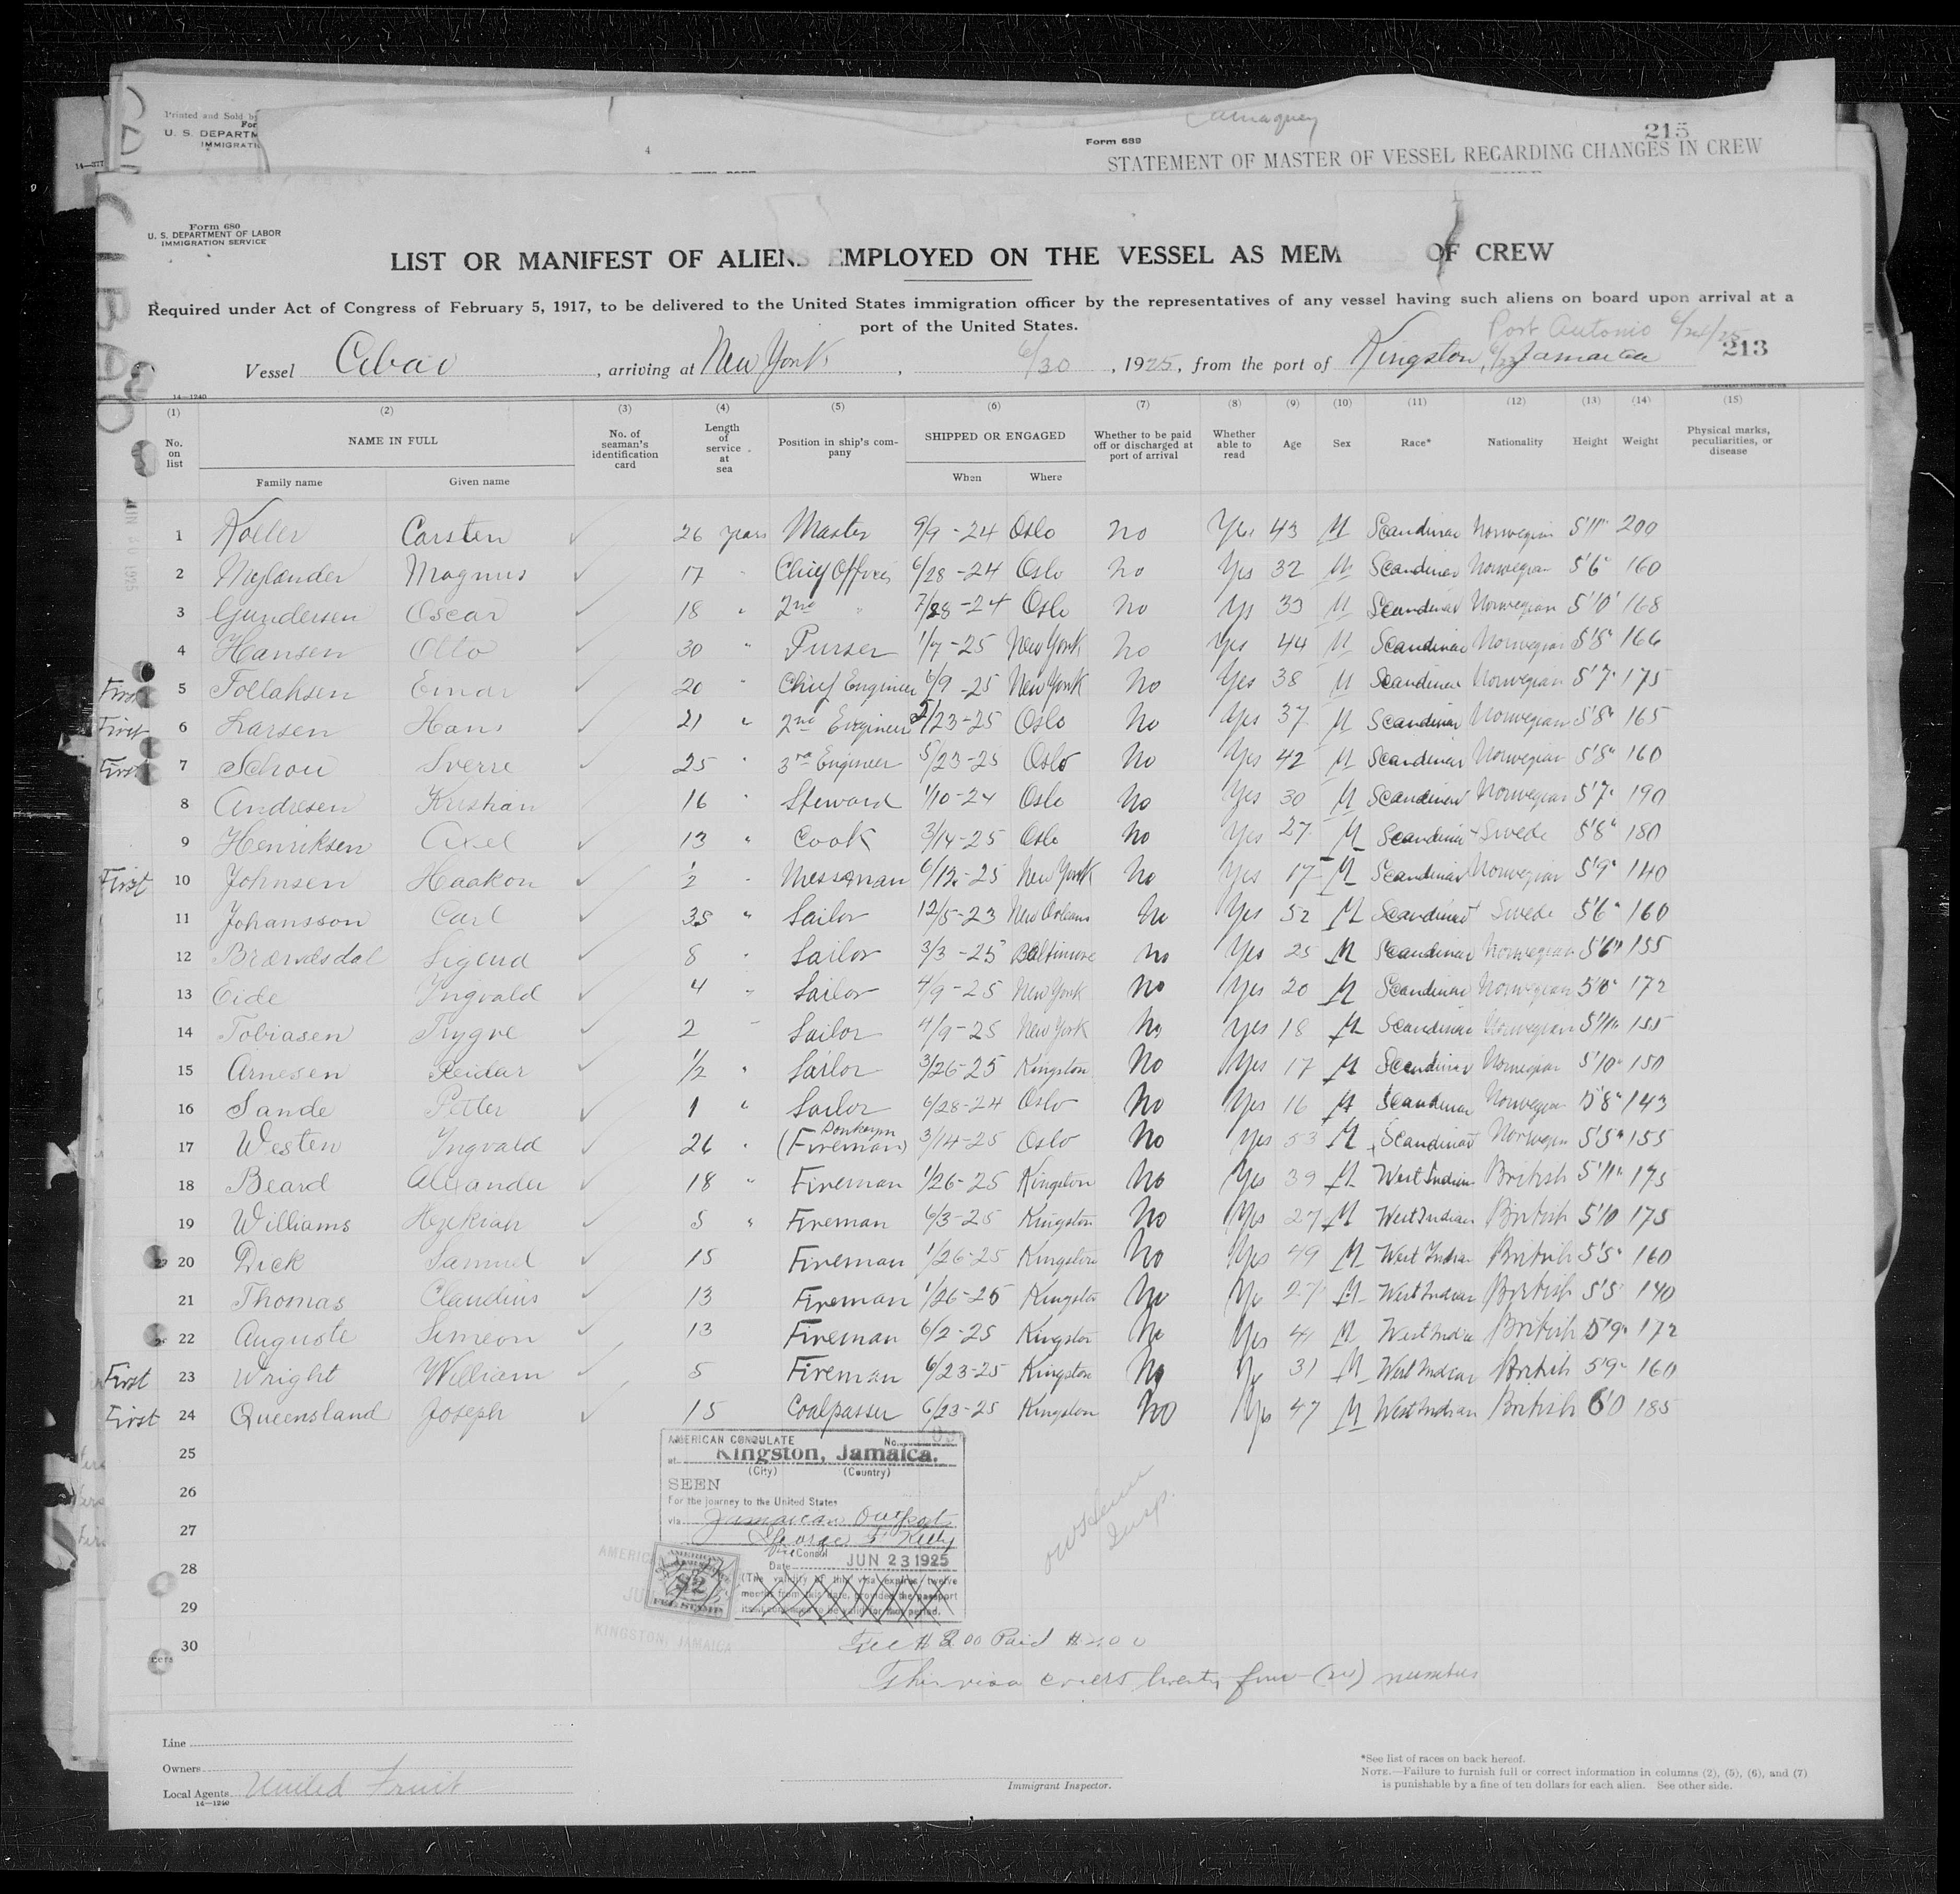 Printed and Sold by
For
U. S. DEPARTM
IMMIGRATI
Form 689
215
STATEMENT OF MASTER OF VESSEL REGARDING CHANGES IN CREW
Form 680
U. S. DEPARTMENT OF LABOR
IMMIGRATION SERVICE
LIST OR MANIFEST OF ALIENS EMPLOYED ON THE VESSEL AS MEM OF CREW
Required under Act of Congress of February 5, 1917, to be delivered to the United States immigration officer by the representatives of any vessel having such aliens on board upon arrival at a
port of the United States.
Port Antonio 6/24/25
Vessel Cibao, arriving at New York, 6/30, 1925, from the port of Kingston, 6/23 Jamaica
213
14—1240
(1) (2) (3) (4) (5) (6) (7) (8) (9) (10) (11) (12) (13) (14) (15)
No. on list NAME IN FULL Family name Given name No. of seaman's identification card Length of service at sea Position in ship's company SHIPPED OR ENGAGED When Where Whether to be paid off or discharged at port of arrival Whether able to read Age Sex Race* Nationality Height Weight Physical marks, peculiarities, or disease
1 Koller Carsten 26 years Master 9/9-24 Oslo no Yes 43 M Scandinav Norwegian 5'11" 200
2 Nylander Magnus 17 " Chief Officer 6/28-24 Oslo no Yes 32 M Scandinav Norwegian 5'6" 160
3 Gundersen Oscar 18 " 2nd " 7/28-24 Oslo no Yes 33 M Scandinav Norwegian 5'10" 168
4 Hansen Otto 30 " Purser 1/7-25 New York no Yes 44 M Scandinav Norwegian 5'8" 166
First 5 Tollaksen Einar 20 " Chief Engineer 6/9-25 New York No Yes 38 M Scandinav Norwegian 5'7" 175
First 6 Larsen Hans 21 " 2nd Engineer 5/23-25 Oslo No Yes 37 M Scandinav Norwegian 5'8" 165
First 7 Schou Sverre 25 " 3rd Engineer 5/23-25 Oslo No Yes 42 M Scandinav Norwegian 5'8" 160
8 Andresen Kristian 16 " Steward 1/10-24 Oslo No Yes 30 M Scandinav Norwegian 5'7" 190
9 Henriksen Axel 13 " Cook 3/14-25 Oslo No Yes 27 M Scandinav Swede 5'8" 180
First 10 Johnsen Haakon 1/2 " Messman 6/12-25 New York No Yes 17 M Scandinav Norwegian 5'9" 140
11 Johansson Carl 35 " Sailor 12/5-23 New Orleans No Yes 52 M Scandinav Swede 5'6" 160
12 Brændsdal Sigurd 8 " Sailor 3/3-25 Baltimore No Yes 25 M Scandinav Norwegian 5'6" 155
13 Eide Yngvald 4 " Sailor 4/9-25 New York No Yes 20 M Scandinav Norwegian 172
14 Tobiasen Trygve 2 " Sailor 4/9-25 New York No Yes 18 M Scandinav Norwegian 5'11" 155
15 Arnesen Reidar 1/2 " Sailor 3/26-25 Kingston No Yes 17 M Scandinav Norwegian 5'10" 150
16 Sande Petter 1 " Sailor 6/28-24 Oslo No Yes 16 M Scandinav Norwegian 5'8" 143
17 Westen Yngvald 26 " Donkeyman (Fireman) 3/14-25 Oslo No Yes 53 M Scandinav Norwegian 5'5" 155
18 Beard Alexander 18 " Fireman 1/26-25 Kingston No Yes 39 M West Indian British 5'11" 175
19 Williams Hezekiah 5 " Fireman 6/3-25 Kingston No Yes 27 M West Indian British 5'10 175
20 Dick Samuel 15 Fireman 1/26-25 Kingston No Yes 49 M West Indian British 5'5" 160
21 Thomas Claudius 13 Fireman 1/26-25 Kingston No Yes 27 M West Indian British 5'5" 140
22 Auguste Simeon 13 Fireman 6/2-25 Kingston No Yes 41 M West Indian British 5'9" 172
First 23 Wright William 5 Fireman 6/23-25 Kingston No Yes 31 M West Indian British 5'9" 160
First 24 Queensland Joseph 15 Coalpasser 6/23-25 Kingston No Yes 47 M West Indian British 6'0 185
25
26
27
28
29
30
AMERICAN CONSULATE No.
at Kingston, Jamaica.
(City) (Country)
SEEN
For the journey to the United States
via Jamaican Outports
Vice Consul
Date JUN 23 1925
(The validity of this visa expires twelve
months from this date, provided the passport
itself continues to be valid for that period.
$2
FEE STAMP
KINGSTON, JAMAICA
Insp.
Fee $2.00 Paid $2.00
This visa covers twenty four (24) members
Line
Owners
Local Agents United Fruit
14—1240
Immigrant Inspector.
*See list of races on back hereof.
NOTE.—Failure to furnish full or correct information in columns (2), (5), (6), and (7)
is punishable by a fine of ten dollars for each alien. See other side.